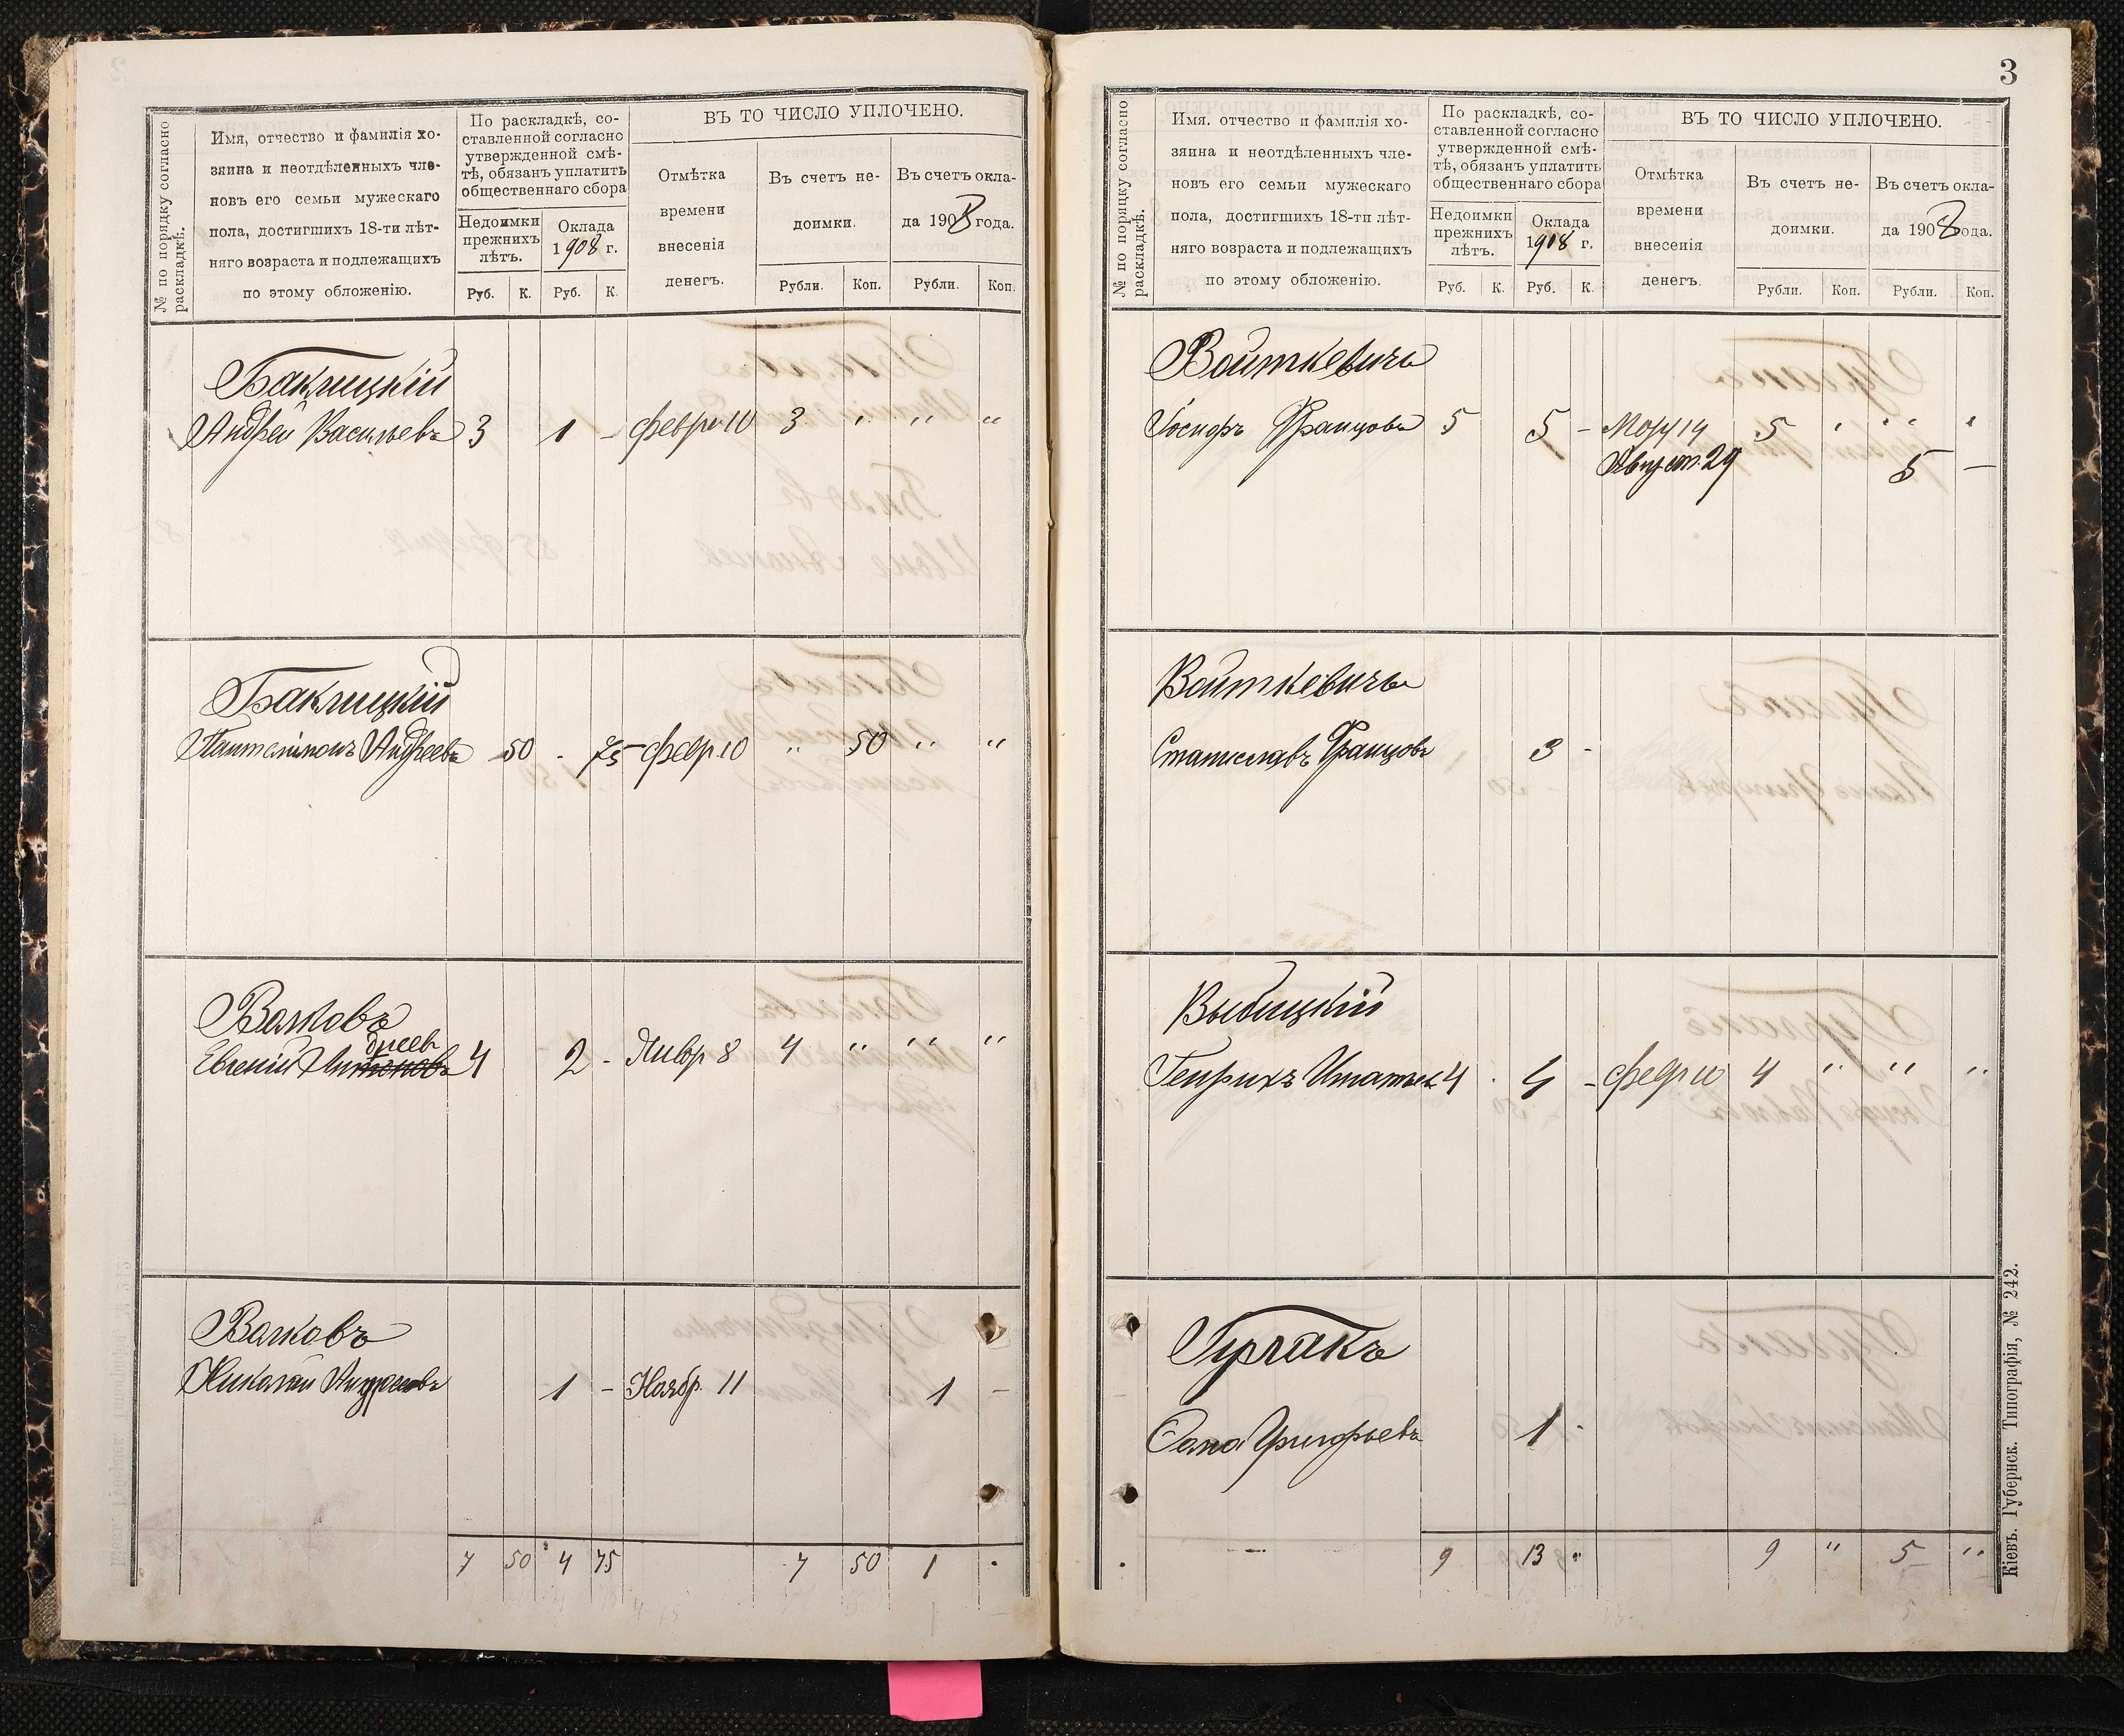 № по порядку согласно раскладкѣ.
Имя, отчество и фамилія хо-
зяина и неотдѣленныхъ чле-
новъ его семьи мужескаго
пола, достигшихъ 18-ти лѣт-
няго возраста и подлежащихъ
по этому обложенію.
По раскладкѣ, со-
ставленной согласно
утвержденной смѣ-
тѣ, обязанъ уплатить
общественнаго сбора
Недоимки
прежнихъ
лѣтъ.
Оклада
1908 г.
Руб. К. Руб. К.
ВЪ ТО ЧИСЛО УПЛОЧЕНО.
Отмѣтка
времени
внесенія
денегъ.
Въ счетъ не-
доимки.
Въ счетъ окла-
да 1908 года.
Рубли. Коп. Рубли. Коп.
Баклицкій
Андрей Васильевъ 3 1 - февр 10 3 " " "
Баклицкій
Пантелимонъ Андреевъ 50 - 75 февр. 10 " 50 " "
Волковъ
дреев
Евгеній Антоновъ 4 2 - Янвр 8 4 " " "
Волковъ
Николай 1 - Ноябр. 11 1 -
7 50 4 75 7 50 1 .
3
№ по порядку согласно раскладкѣ.
Имя. отчество и фамилія хо-
зяина и неотдѣленныхъ чле-
новъ его семьи мужескаго
пола, достигшихъ 18-ти лѣт-
няго возраста и подлежащихъ
по этому обложенію.
По раскладкѣ, со-
ставленной согласно
утвержденной смѣ-
тѣ, обязанъ уплатить
общественнаго сбора
Недоимки
прежнихъ
лѣтъ.
Оклада
1908 г.
Руб. К. Руб. К.
ВЪ ТО ЧИСЛО УПЛОЧЕНО.
Отмѣтка
времени
внесенія
денегъ.
Въ счетъ не-
доимки.
Въ счетъ окла-
да 1908 года.
Рубли. Коп. Рубли. Коп.
Войткевичъ
Іосифъ Францовъ 5 5 - 14 5 " " "
Август. 29 5 —
Войткевичъ
Станиславъ Францовъ 3 -
Выбицкій
Генрихъ Игнатьев 4 . 4 - февр 10 4 " " "
Гурчакъ
Григорьевъ 1 -
9 13 " 9 " 5 "
Кіевъ. Губернск. Типографія, № 242.